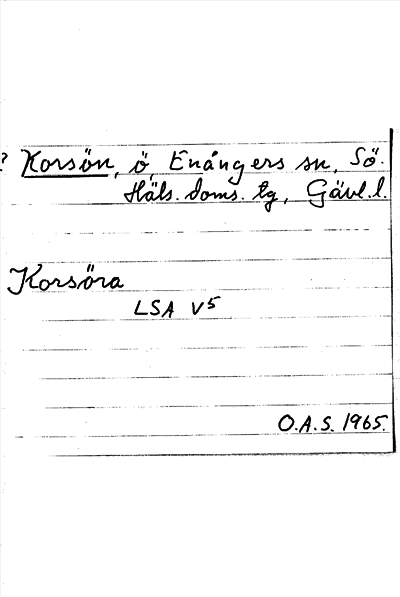 ? Korsön, ö, Enångers sn, Sö.
Häls. doms. tg, Gävl.l.
Korsöra
LSA V5
O.A.S. 1965.